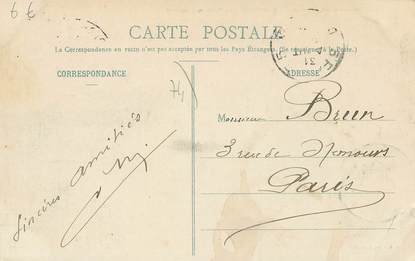 6 €
CARTE POSTALE
(La Correspondance au recto n'est pas acceptée par tous les Pays Étrangers. (Se renseigner à la Poste.)
CORRESPONDANCE
ADRESSE
74
31
Sincères amitiés
Monsieur Brun
3 rue de Nemours
Paris